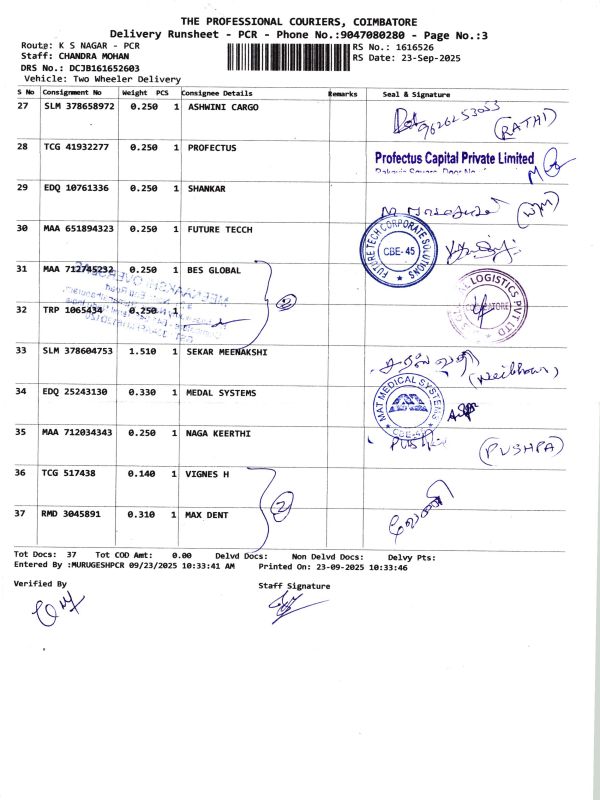 THE PROFESSIONAL COURIERS, COIMBATORE
Delivery Runsheet - PCR - Phone No.:9047080280 - Page No.:3
Route: K S NAGAR - PCR
RS No.: 1616526
Staff: CHANDRA MOHAN
RS Date: 23-Sep-2025
DRS No.: DCJB161652603
Vehicle: Two Wheeler Delivery
S No Consignment No Weight PCS Consignee Details Remarks Seal & Signature
27 SLM 378658972 0.250 1 ASHWINI CARGO
9626253053
(RATHI)
28 TCG 41932277 0.250 1 PROFECTUS
Profectus Capital Private Limited
29 EDQ 10761336 0.250 1 SHANKAR
30 MAA 651894323 0.250 1 FUTURE TECCH
FUTURE TECH CORPORATE SOLUTIONS
CBE- 45
31 MAA 712745232 0.250 1 BES GLOBAL
2
LOGISTICS PVT LTD
32 TRP 1065434 0.250 1
33 SLM 378604753 1.510 1 SEKAR MEENAKSHI
34 EDQ 25243130 0.330 1 MEDAL SYSTEMS
MAT MEDICAL SYSTEMS
CBE-45
35 MAA 712034343 0.250 1 NAGA KEERTHI
(PUSHPA)
36 TCG 517438 0.140 1 VIGNES H
2
37 RMD 3045891 0.310 1 MAX DENT
Tot Docs: 37 Tot COD Amt: 0.00 Delvd Docs: Non Delvd Docs: Delvy Pts:
Entered By :MURUGESHPCR 09/23/2025 10:33:41 AM Printed On: 23-09-2025 10:33:46
Verified By
Staff Signature